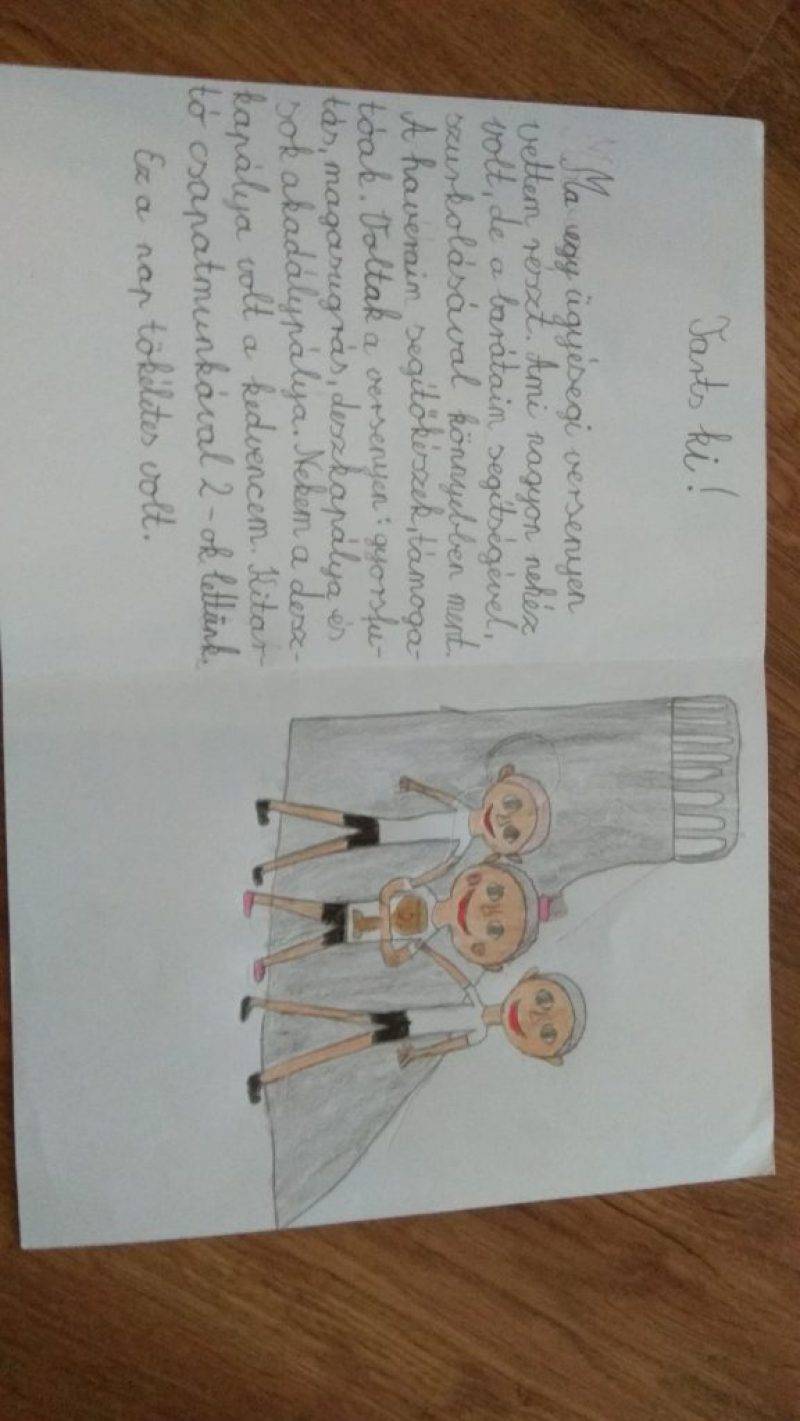 Tarts ki!
Ma egy ügyességi versenyen
vettem reszt. Ami nagyon nehéz
volt, de a barátaim segítségével,
szurkolásával könnyebben ment.
A haveraim segítőkészek, támoga-
tóak. Voltak a versenyen: gyorsfu-
tás, magasugrás, deszkapálya és
sok akadálypálya. Nekem a desz-
kapálya volt a kedvencem. Kitar-
tó csapatmunkával 2-ok lettünk.
Ez a nap tökéletes volt.